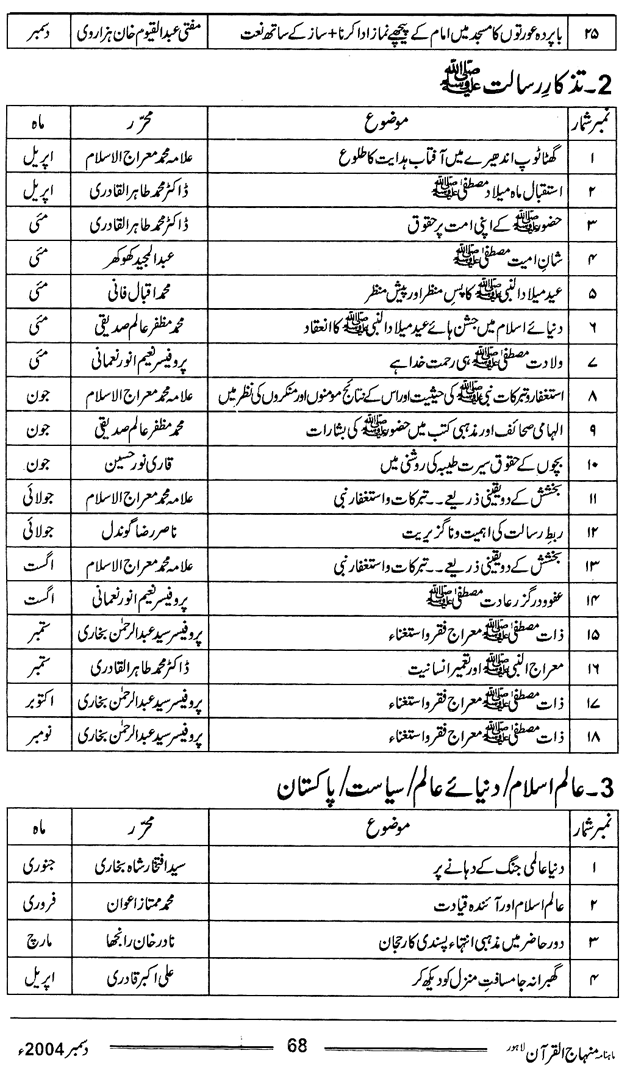 ۲۵ باپردہ عورتوں کا مسجد میں امام کے پیچھے نماز ادا کرنا + ساز کے ساتھ نعت مفتی عبدالقیوم خان ہزاروی دسمبر
2۔ تذکارِ رسالت ﷺ
نمبر شمار موضوع محرّر ماہ
۱ گھٹا ٹوپ اندھیرے میں آفتاب ہدایت کا طلوع علامہ محمد معراج الاسلام اپریل
۲ استقبال ماہ میلاد مصطفیٰ ﷺ ڈاکٹر محمد طاہر القادری اپریل
۳ حضور ﷺ کے اپنی امت پر حقوق ڈاکٹر محمد طاہر القادری مئی
۴ شانِ امیت مصطفیٰ ﷺ عبدالمجید کھوکھر مئی
۵ عید میلاد النبی ﷺ کا پس منظر اور پیش منظر محمد اقبال فانی مئی
۶ دنیائے اسلام میں جشن ہائے عید میلاد النبی ﷺ کا انعقاد محمد مظفر عالم صدیقی مئی
۷ ولادت مصطفیٰ ﷺ ہی رحمت خدا ہے پروفیسر نعیم انور نعمانی مئی
۸ استغفار و تبرکات نبی ﷺ کی حیثیت اور اس کے نتائج مومنوں اور منکروں کی نظر میں علامہ محمد معراج الاسلام جون
۹ الہامی صحائف اور مذہبی کتب میں حضور ﷺ کی بشارات محمد مظفر عالم صدیقی جون
۱۰ بچوں کے حقوق سیرت طیبہ کی روشنی میں قاری نور حسین جون
۱۱ بخشش کے دو یقینی ذریعے۔۔ تبرکات و استغفار نبی علامہ محمد معراج الاسلام جولائی
۱۲ ربط رسالت کی اہمیت و ناگزیریت ناصر رضا گوندل جولائی
۱۳ بخشش کے دو یقینی ذریعے۔۔ تبرکات و استغفار نبی علامہ محمد معراج الاسلام اگست
۱۴ عفو و درگزر عادت مصطفیٰ ﷺ پروفیسر نعیم انور نعمانی اگست
۱۵ ذات مصطفیٰ ﷺ معراج فقر و استغناء پروفیسر سید عبدالرحمٰن بخاری ستمبر
۱۶ معراج النبی ﷺ اور تعمیر انسانیت ڈاکٹر محمد طاہر القادری ستمبر
۱۷ ذات مصطفیٰ ﷺ معراج فقر و استغناء پروفیسر سید عبدالرحمٰن بخاری اکتوبر
۱۸ ذات مصطفیٰ ﷺ معراج فقر و استغناء پروفیسر سید عبدالرحمٰن بخاری نومبر
3۔ عالم اسلام/ دنیائے عالم/ سیاست/ پاکستان
نمبر شمار موضوع محرّر ماہ
۱ دنیا عالمی جنگ کے دہانے پر سید افتخار شاہ بخاری جنوری
۲ عالم اسلام اور آئندہ قیادت محمد ممتاز اعوان فروری
۳ دور حاضر میں مذہبی انتہاء پسندی کا رجحان نادر خان رانجھا مارچ
۴ گھبرا نہ جا مسافتِ منزل کو دیکھ کر علی اکبر قادری اپریل
ماہنامہ منہاج القرآن لاہور 68 دسمبر 2004ء